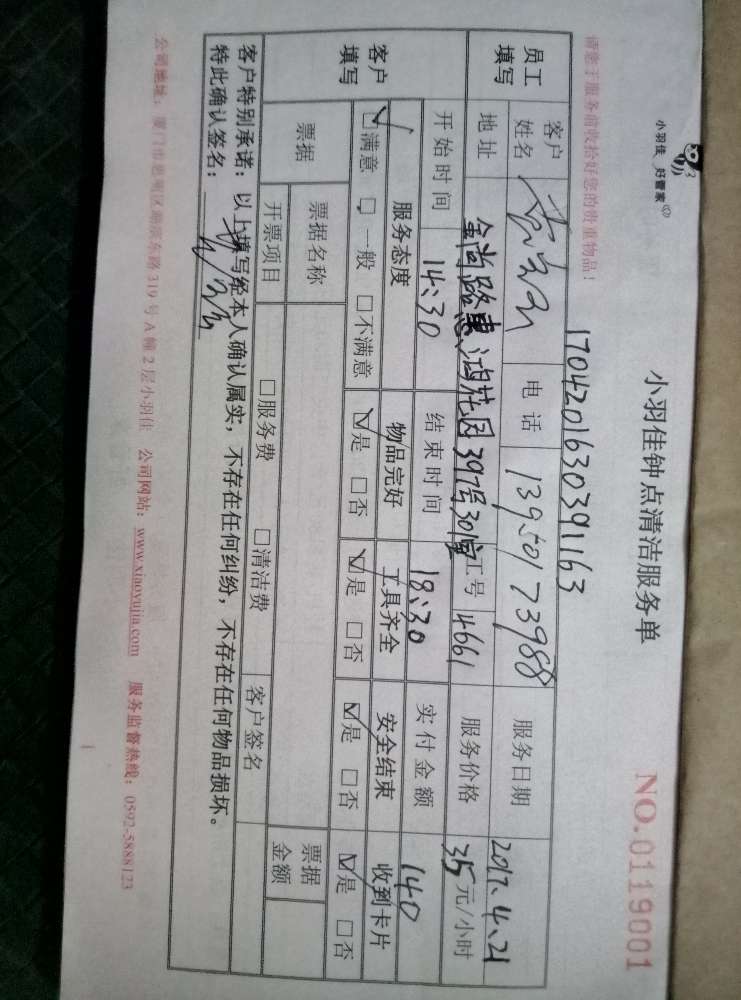 小羽佳 好管家
小羽佳钟点清洁服务单
NO.0119001
请您于服务前收拾好您的贵重物品！
17042016303391163
员工填写
客户姓名 电话 13950173988 服务日期 2017.4.21
地址 金尚路惠鸿花园397号301室 工号 14661 服务价格 35元/小时
开始时间 14:30 结束时间 18:30 实付金额 140
客户填写
服务态度 物品完好 工具齐全 安全结束 收到卡片
☑满意 □一般 □不满意 ☑是 □否 ☑是 □否 ☑是 □否 ☑是 □否
票据 票据名称 票据金额
开票项目 □服务费 □清洁费 客户签名
客户特别承诺：以上填写经本人确认属实，不存在任何纠纷，不存在任何物品损坏。
特此确认签名：
公司地址：厦门市思明区湖滨东路319号A幢2层小羽佳 公司网站：www.xiaoyujia.com 服务监督热线：0592-5888123